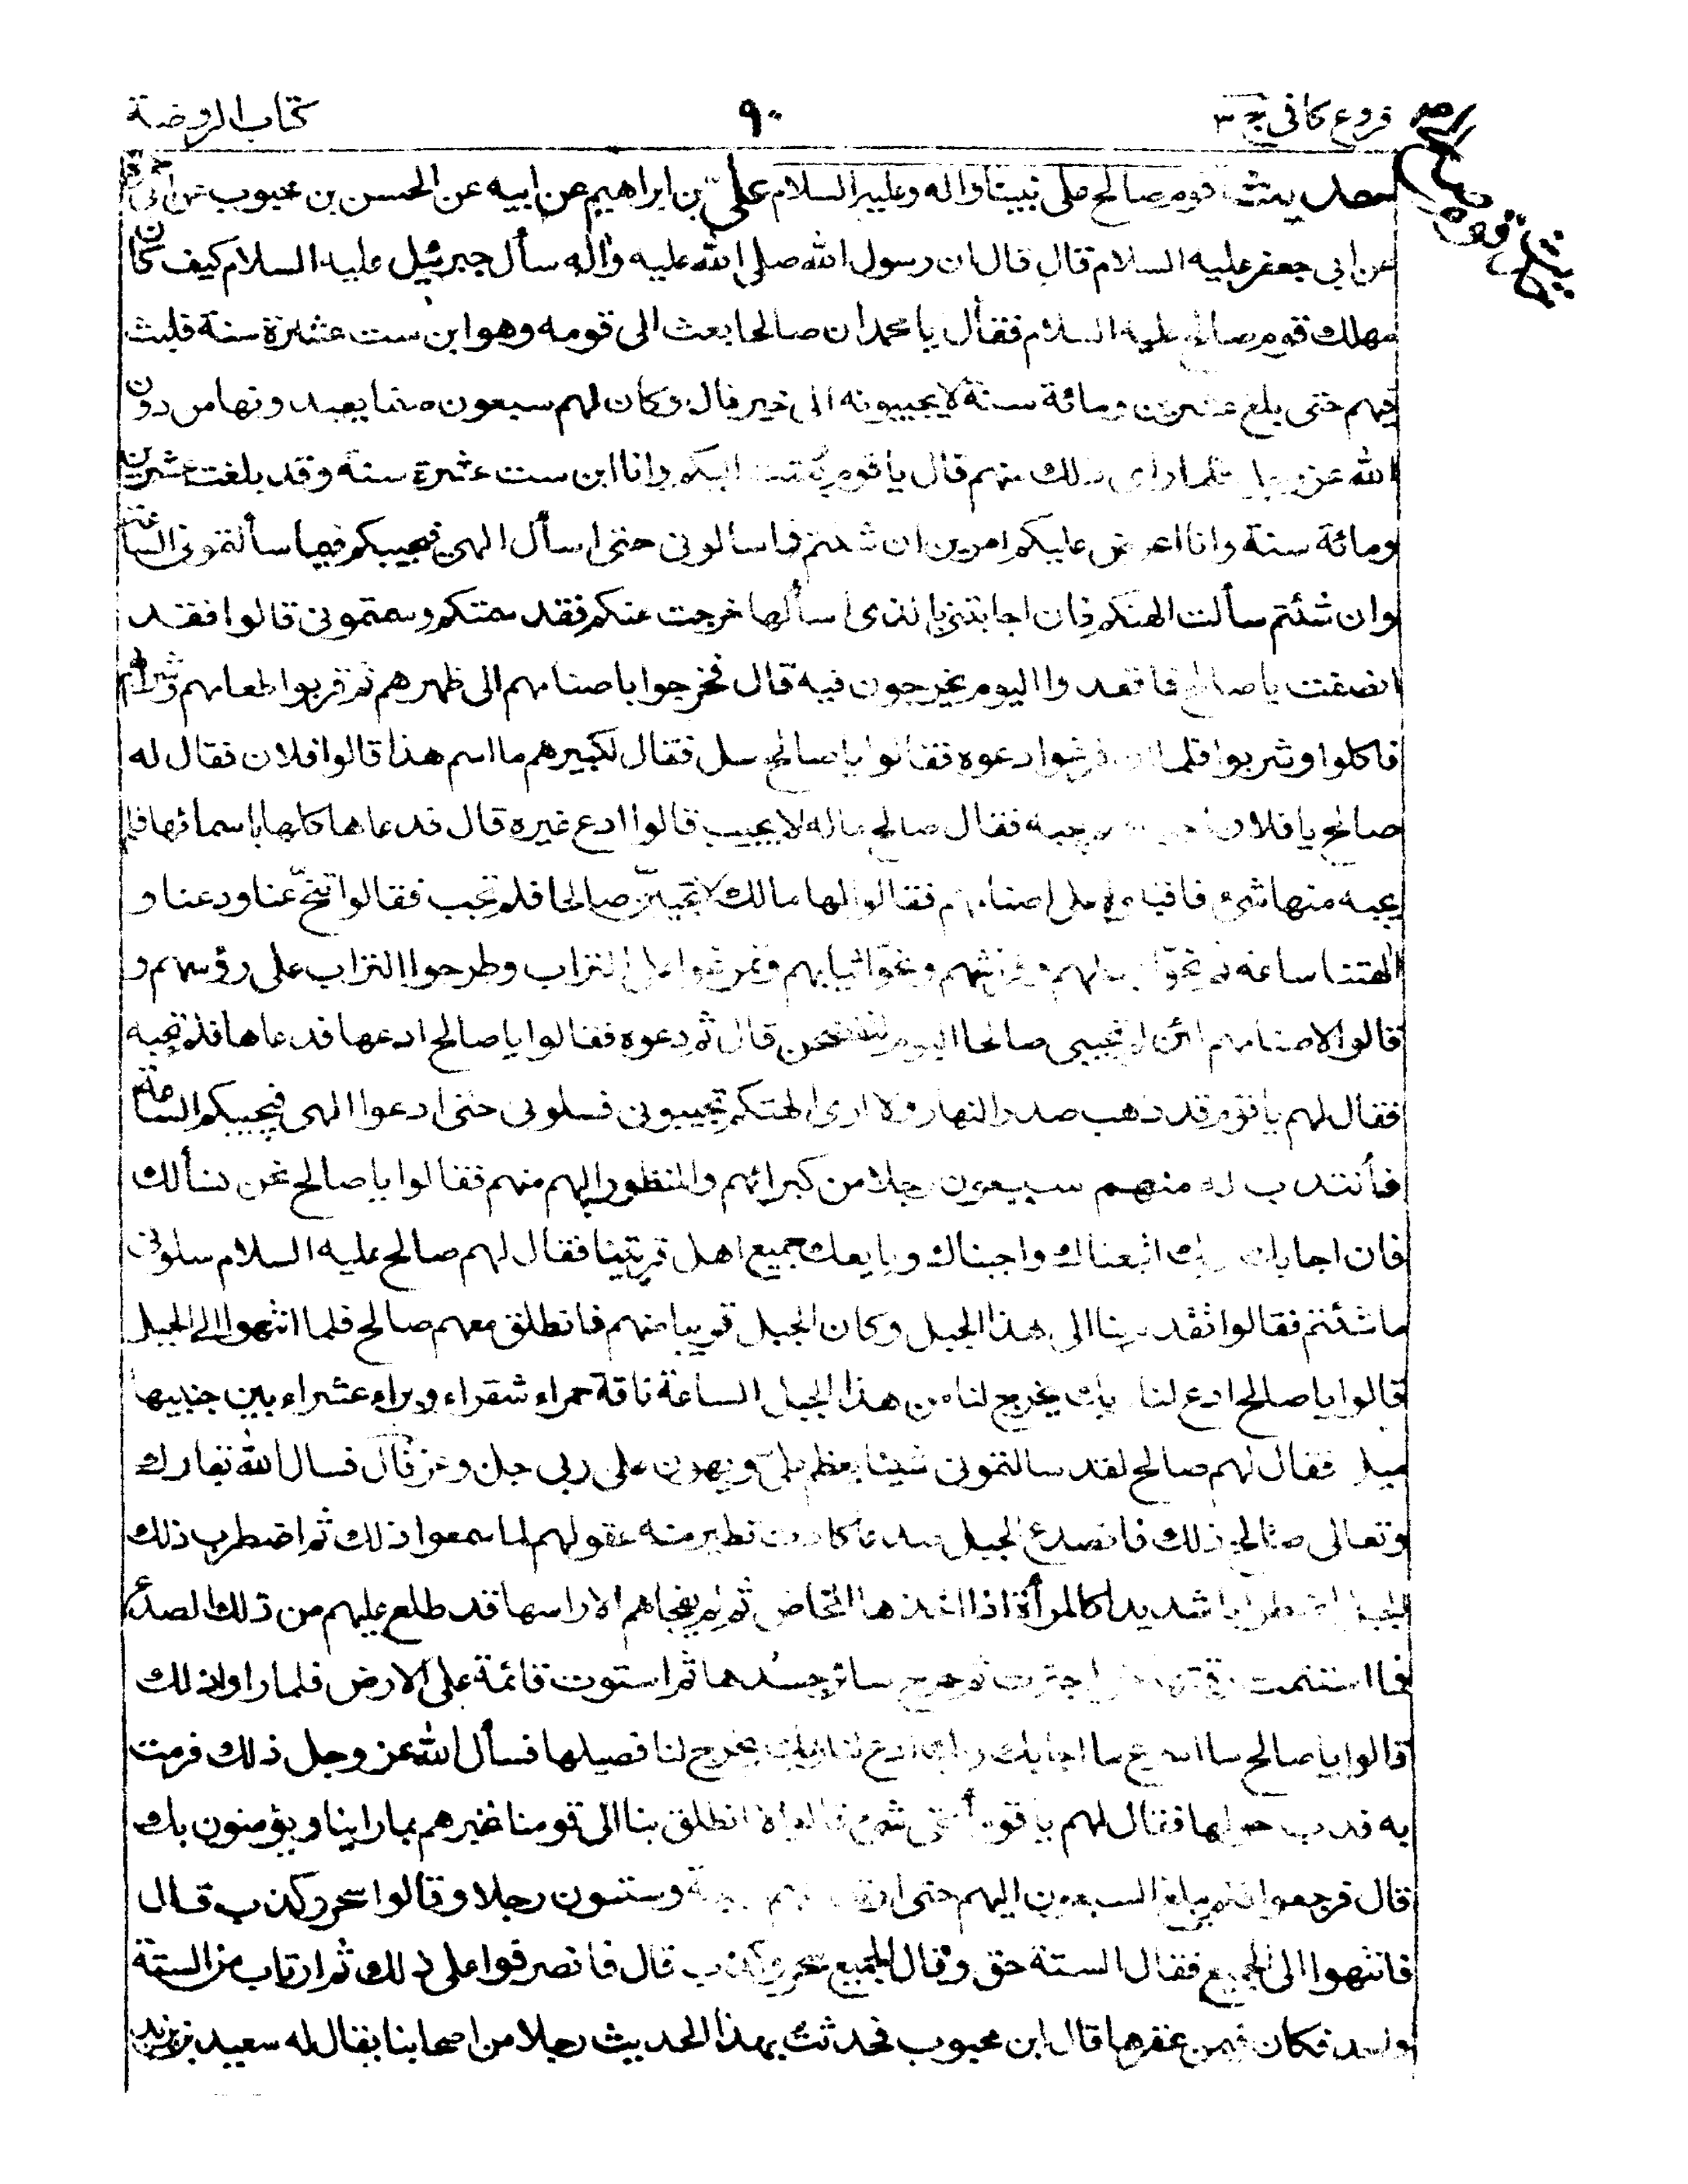 فروع كافى ج ٣
٩٠
كتاب الروضة
حديث قوم صالح
حديث قوم صالح على نبينا واله وعليه السلام على بن ابراهيم عن ابيه عن الحسن بن محبوب عن ابى حمزة
عن ابى جعفر عليه السلام قال قال ان رسول الله صلى الله عليه واله سأل جبرئيل عليه السلام كيف كان
مهلك قوم صالح عليه السلام فقال يا محمد ان صالحا بعث الى قومه وهو ابن ست عشرة سنة فلبث
فيهم حتى بلغ عشرين ومائة سنة لا يجيبونه الى خير قال وكان لهم سبعون صنما يعبدونها من دون
الله عز وجل فلما راى ذلك منهم قال يا قوم بعثت اليكم وانا ابن ست عشرة سنة وقد بلغت عشرين
ومائة سنة وانا اعرض عليكم امرين ان شئتم فاسالونى حتى اسأل الهى فيجيبكم فيما سألتمونى الساعة
وان شئتم سألت الهتكم فان اجابتنى بالذى اسألها خرجت عنكم فقد سمتكم وسمتمونى قالوا فقد
انصفت يا صالح فاتعدوا اليوم يخرجون فيه قال فخرجوا باصنامهم الى ظهرهم ثم قربوا طعامهم وشرابهم
فاكلوا وشربوا فلما ان فرغوا دعوه فقالوا يا صالح سل فقال لكبيرهم ما اسم هذا قالوا فلان فقال له
صالح يا فلان اجب فلم يجبه فقال صالح ماله لا يجيب قالوا ادع غيره قال فدعاها كلها باسمائها فلم
يجبه منها شئ فاقبلوا على اصنامهم فقالوا لها مالك لا تجيبين صالحا فلم تجب فقالوا تنح عنا ودعنا و
الهتنا ساعة ثم نحوا بسطهم وفرشهم ونحوا ثيابهم وتمرغوا على التراب وطرحوا التراب على رؤسهم و
قالوا لاصنامهم لئن لم تجيبى صالحا اليوم لنفضحن قال ثم دعوه فقالوا يا صالح ادعها فدعاها فلم تجبه
فقال لهم يا قوم قد ذهب صدر النهار ولا ارى الهتكم تجيبونى فسلونى حتى ادعوا الهى فيجيبكم الساعة
فأنتدب له منهم سبعون رجلا من كبرائهم والمنظور اليهم منهم فقالوا يا صالح نحن نسألك
فان اجابك ربك اتبعناك واجبناك ويبايعك جميع اهل قريتنا فقال لهم صالح عليه السلام سلونى
ما شئتم فقالوا تقدم بنا الى هذا الجبل وكان الجبل قريبا منهم فانطلق معهم صالح فلما انتهوا الى الجبل
قالوا يا صالح ادع لنا ربك يخرج لنا من هذا الجبل الساعة ناقة حمراء شقراء وبراء عشراء بين جنبيها
ميل فقال لهم صالح لقد سالتمونى شيئا يعظم على ويهون على ربى جل وعز قال فسال الله تبارك
وتعالى صالح ذلك فانصدع الجبل صدعا كادت تطير منه عقولهم لما سمعوا ذلك ثم اضطرب ذلك
الجبل اضطرابا شديدا كالمرأة اذا اخذها المخاض ثم لم يفجاهم الا راسها قد طلع عليهم من ذلك الصدع
فما استتمت رقبتها حتى اجترت ثم خرج سائر جسدها ثم استوت قائمة على الارض فلما راوا ذلك
قالوا يا صالح ما اسرع ما اجابك ربك ادع لنا ربك يخرج لنا فصيلها فسأل الله عز وجل ذلك فرمت
به فدب حولها فقال لهم يا قوم أبقى شئ قالوا لا انطلق بنا الى قومنا نخبرهم بما راينا ويؤمنون بك
قال فرجعوا فلم يبلغ السبعون اليهم حتى ارتد منهم اربعة وستون رجلا وقالوا سحر وكذب قال
فانتهوا الى الجميع فقال الستة حق وقال الجميع سحر وكذب قال فانصرفوا على ذلك ثم ارتاب من الستة
واحد فكان فيمن عقرها قال ابن محبوب فحدثت بهذا الحديث رجلا من اصحابنا يقال له سعيد بن يزيد